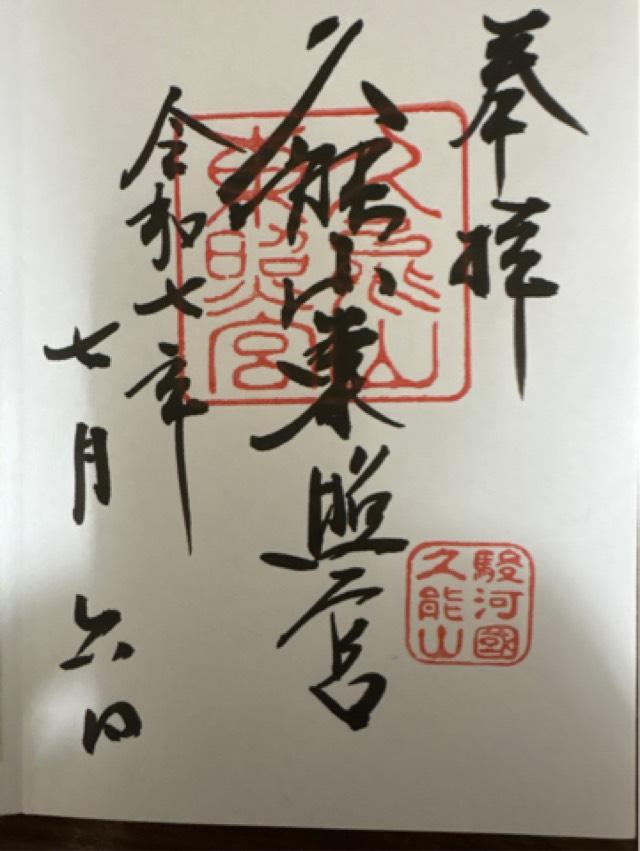 奉拝
久能山東照宮
令和七年
七月六日
久能山
東照宮
駿河國
久能山